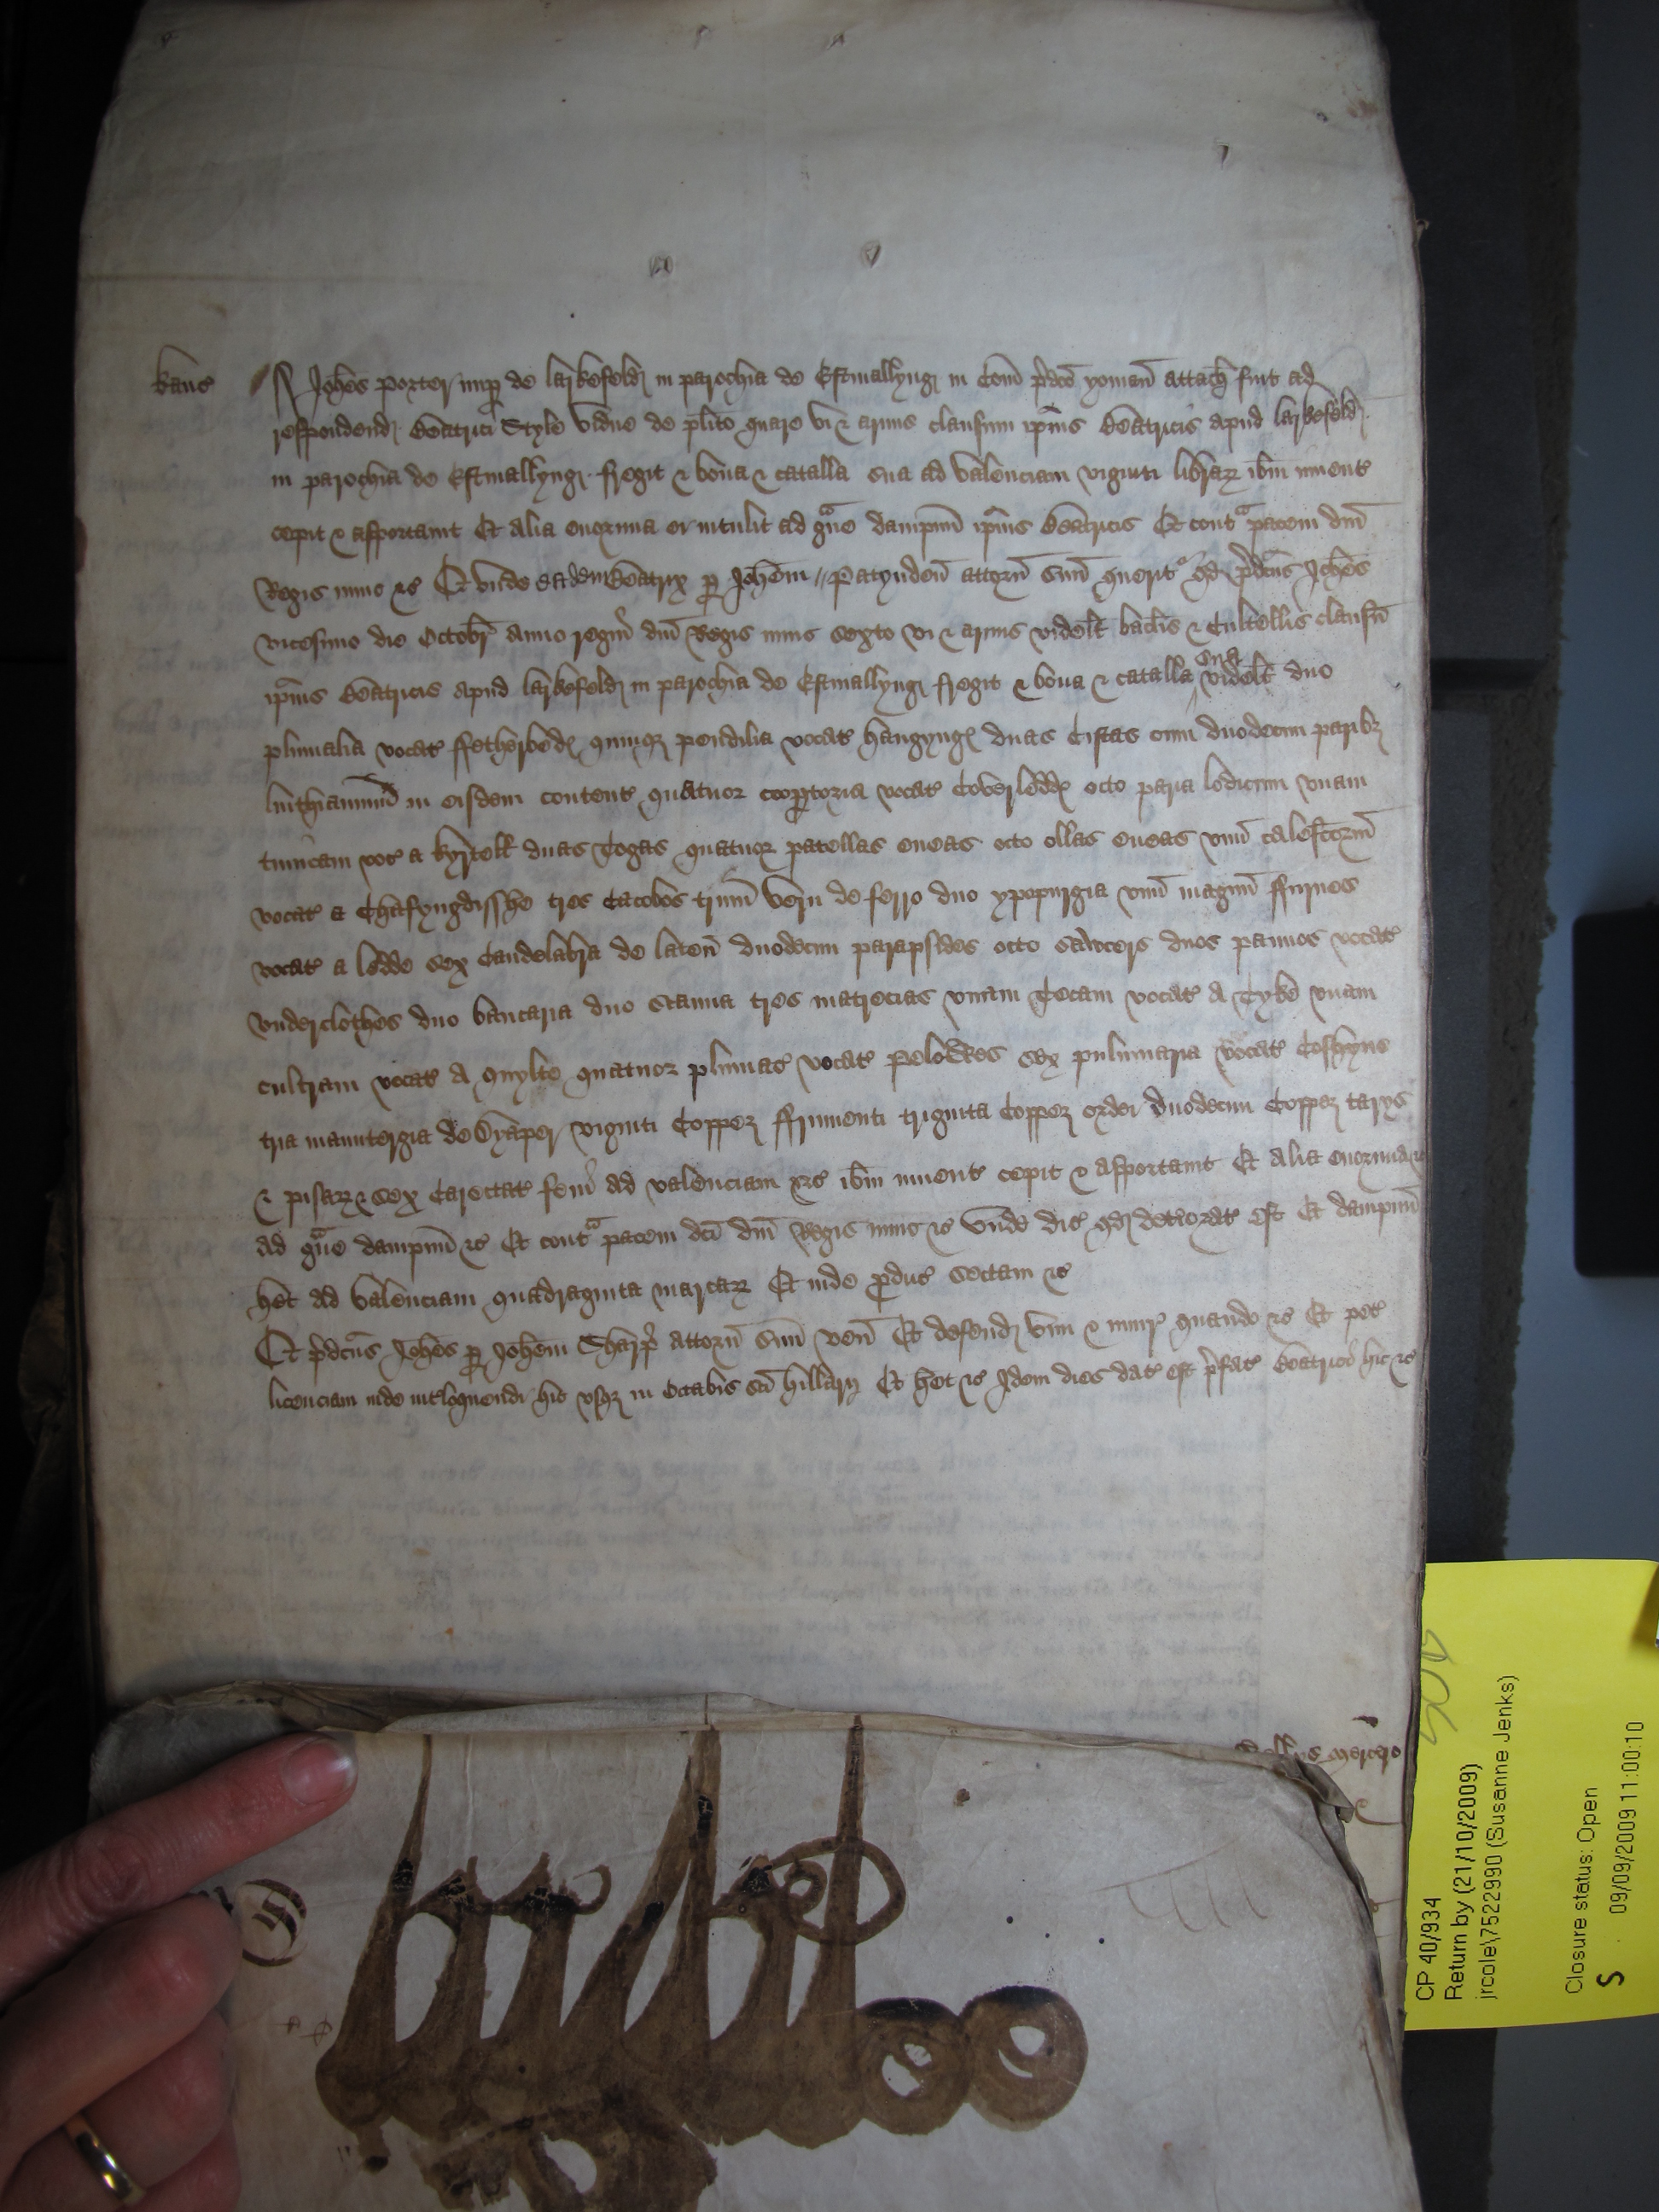 kanc
Johes Porter nup de larkefeld in parochia de Estmallyng in Com pdco yoman attach fuit ad
respondend Beatrici Style vidue de plito quare vi & armis clausum ipius Beatricis apud larkefeld
in parochia de Estmallyng fregit & bona & catalla sua ad valenciam viginti librar ibm invent
cepit & asportavit Et alia enormia ei intulit ad gave dampnum ipius Beatricis Et conta pacem dni
Regis nunc &c Et unde eadem Beatrix p Johem Patynden attorn suum querit qd pdcus Johes
vicesimo die Octobr anno regni dni Regis nunc sexto vi & armis videlt baclis & Cultellis clausu
ipius Beatricis apud larkefeld in parochia de Estmallyng fregit & bona & catalla sua videlt duo
plumalia vocat ffetherbedd quinq pendilia vocat hangyng duas Cistas cum duodecim parib
linthiaminu in eisdem content quatuor cooptoria vocat Coverledd octo paria lodicum unam
tunicam voc a kyrtell duas Togas quatuor patellas eneas octo ollas eneas unu calefcorm
vocat a Chafyngdisshe tres Cacobos unum veru de ferro duo ypopurgia unu magnu ffurnes
vocat a ledde sex Candelabra de laten duodecim parapsides octo sawcers duos pannos vocat
underclothes duo bancaria duo stanna tres matrecias unam Tecam vocat a Tyke unam
cultram vocat a quylte quatuor plumas vocat pelowes sex pulvinaria vocat Coshyns
tria manutergia de Dyaper viginti Copper ffrumenti triginta Copper ordei duodecim Copper tarys
& pisar & sex Carectat feni ad valenciam &c ibm invent cepit & asportavit Et alia enormia &c
ad gave dampnum &c Et conta pacem dci dni Regis nunc &c unde dic qd deteriorat est Et dampnu
het ad valenciam quadraginta marcar Et inde pduc sectam &c
Et pdcus Johes p Johem Sharp attorn suum ven Et defend vim & iniur quando &c Et pet
licenciam inde intloquendi hic usq in Octabis sci hillarij Et het &c Idem dies dat est pfat Beatrici hic &c
CP 40/934
Return by (21/10/2009)
jrcole\7522990 (Susanne Jenks)
Closure status: Open
S 09/09/2009 11:00:10